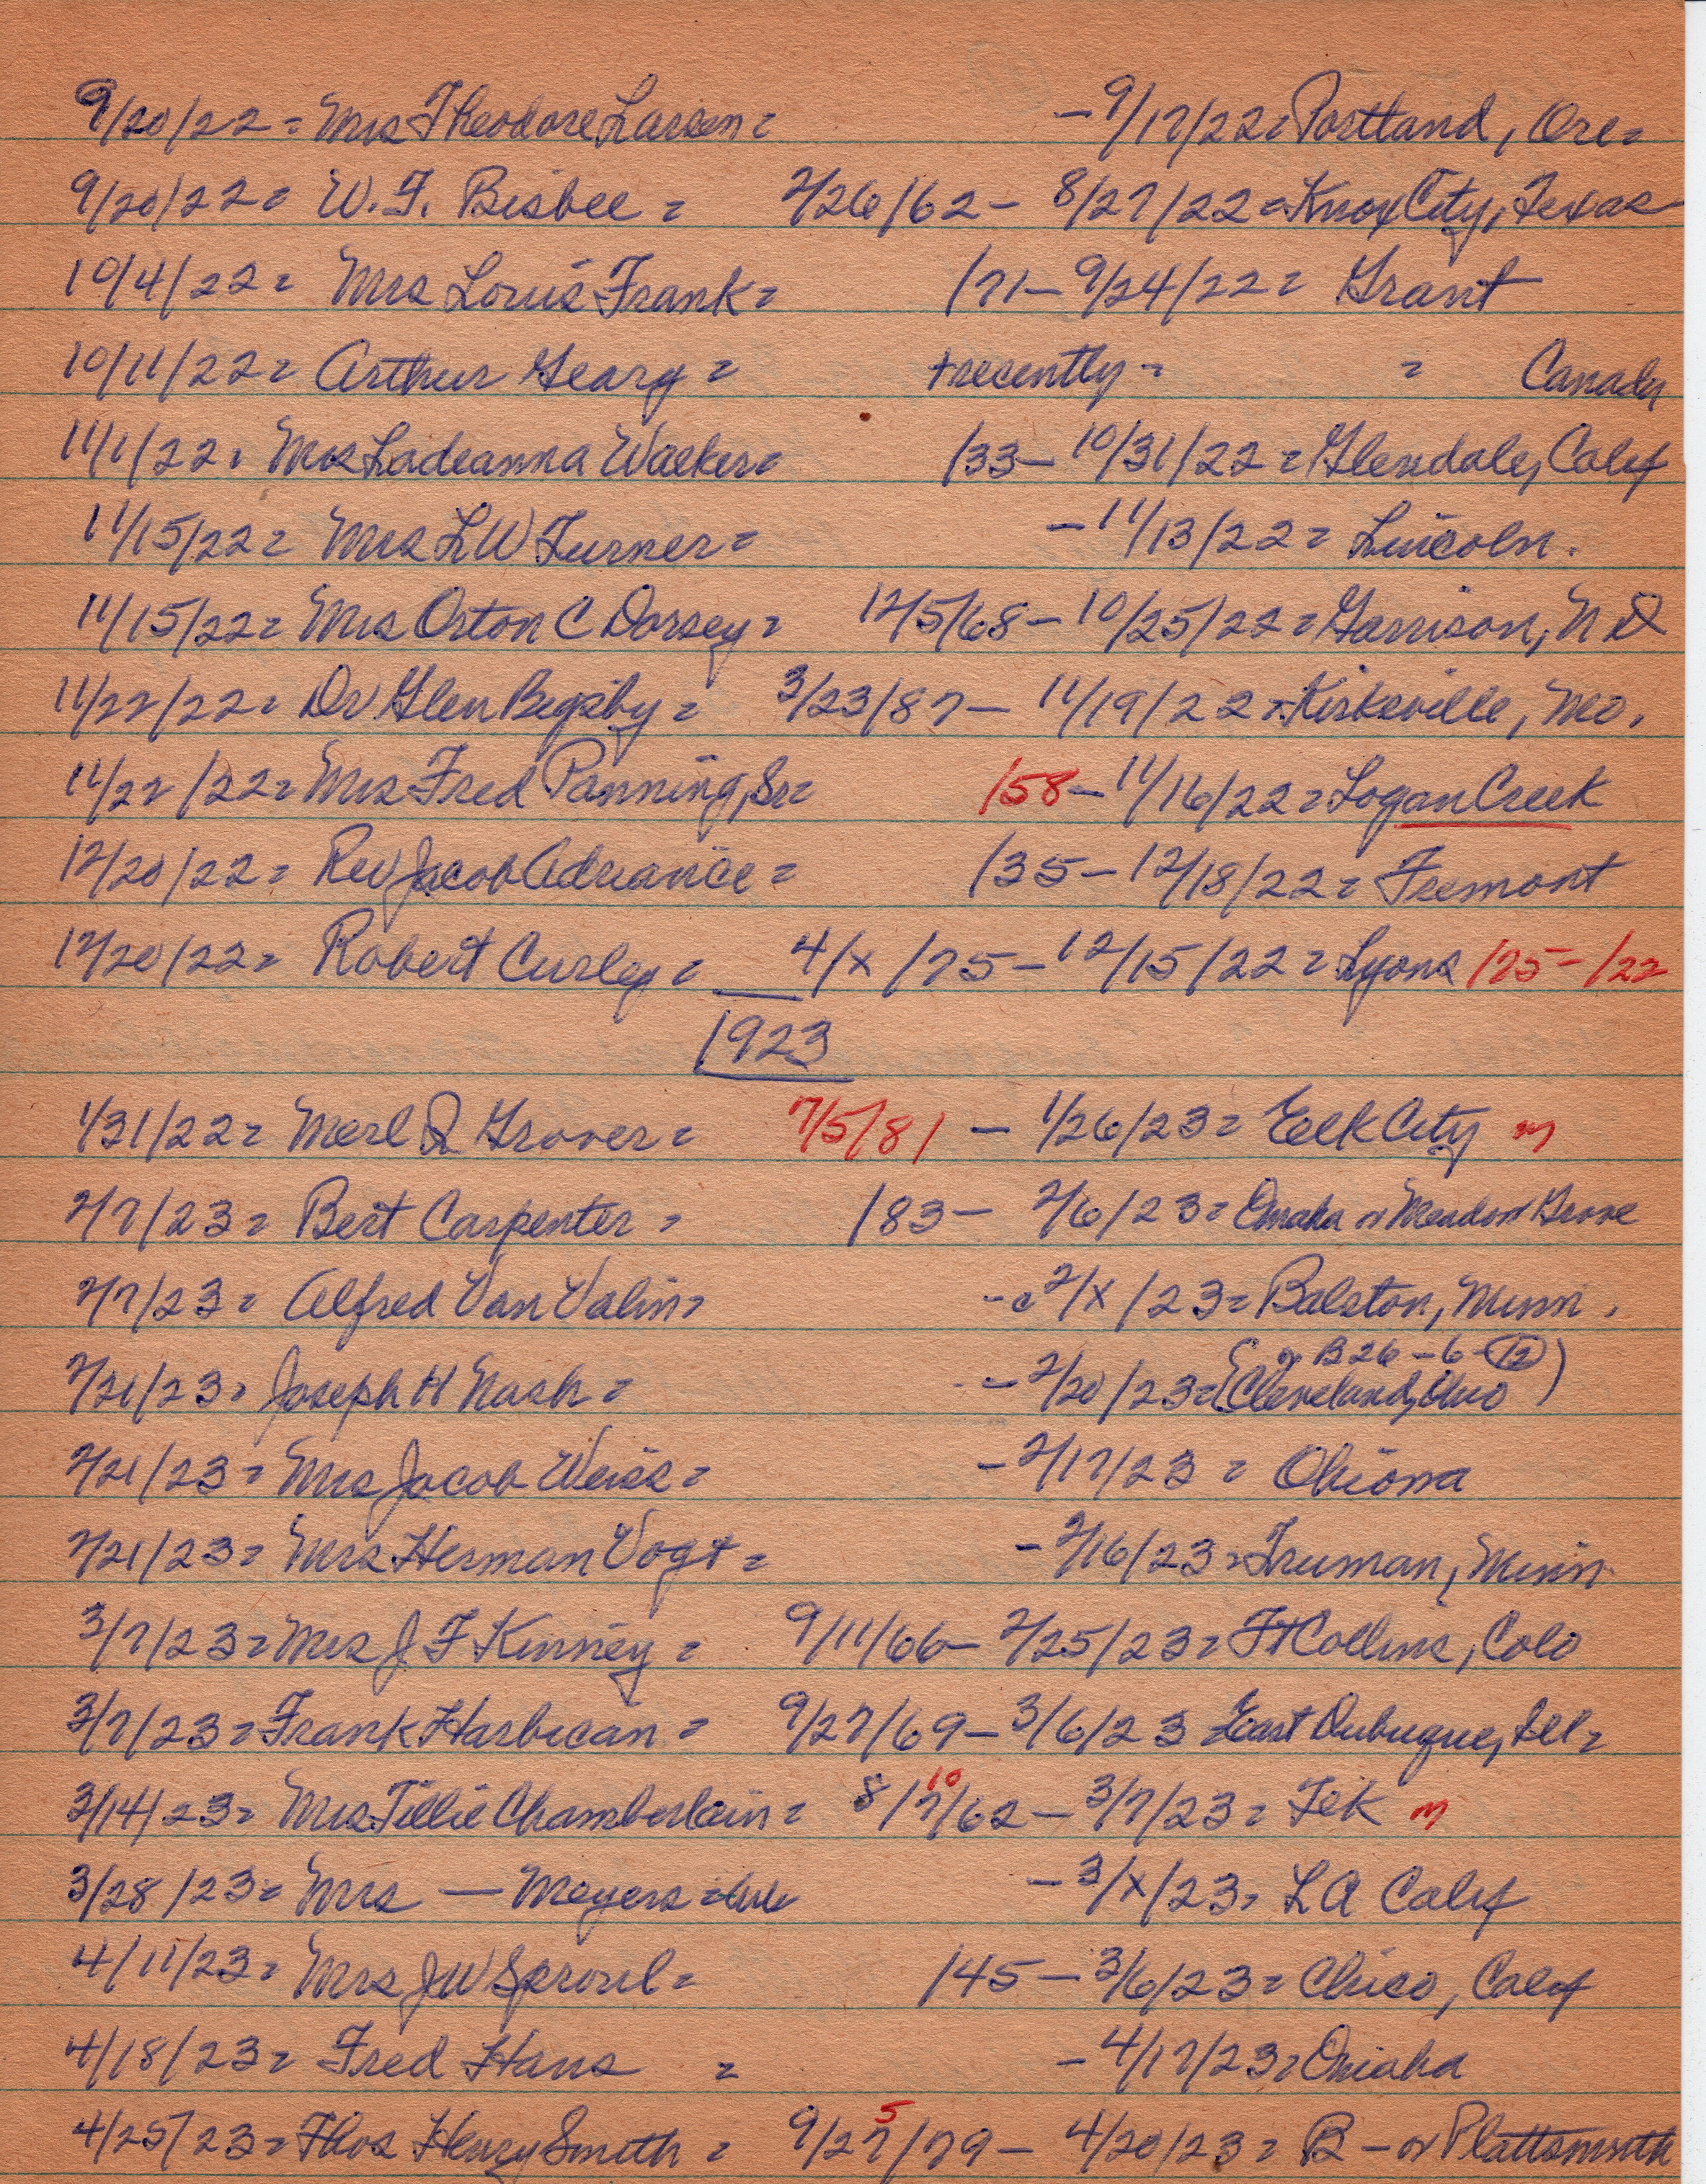 9/20/22 = Mrs Theodore Larsen = - 9/17/22 = Portland, Ore =
9/20/22 = W. F. Bisbee = 2/26/62 - 8/27/22 = Knox City, Texas
10/4/22 = Mrs Louis Frank = /71 - 9/24/22 = Grant
10/11/22 = Arthur Geary = + recently - = Canada
11/1/22 = Mrs Ladeanna Walker = /33 - 10/31/22 = Glendale, Calif
11/15/22 = Mrs L W Turner = - 11/13/22 = Lincoln.
11/15/22 = Mrs Orton C Dorsey = 12/5/68 - 10/25/22 = Garrison, N D
11/22/22 = Dr Glen Bigsby = 3/23/87 - 11/19/22 = Kirksville, Mo.
11/22/22 = Mrs Fred Panning, Sr = /58 - 11/16/22 = Logan Creek
12/20/22 = Rev Jacob Adriance = /35 - 12/18/22 = Fremont
12/20/22 = Robert Curley = 4/x/75 - 12/15/22 = Lyons /75 - /22
1923
1/31/22 = Merl D Grover = 7/5/81 - 1/26/23 = Eelk City m
2/7/23 = Bert Carpenter = /83 - 2/6/23 = Omaha or Meadow Grove
2/7/23 = Alfred Van Valin = - c 2/x/23 = Balston, Minn.
or B 26 - 6 - 12
2/21/23 = Joseph H Nash = - 2/20/23 = (Cleveland, Ohio)
2/21/23 = Mrs Jacob Weiss = - 2/17/23 = Ohiowa
2/21/23 = Mrs Herman Vogt = - 2/16/23 = Truman, Minn
3/7/23 = Mrs J F Kinney = 9/11/66 - 2/25/23 = Ft Collins, Colo
3/7/23 = Frank Harbican = 9/27/69 - 3/6/23 = East Dubuque, Ill =
10
3/14/23 = Mrs Tillie Chamberlain = 8/7/62 - 3/7/23 = Tek m
3/28/23 = Mrs — Meyers = - 3/x/23 = L A Calif
4/11/23 = Mrs J W Sproul = /45 - 3/6/23 = Chico, Calif
4/18/23 = Fred Hans = - 4/17/23 = Omaha
5
4/25/23 = Thos Henry Smith = 9/27/79 - 4/20/23 = B - or Plattsmouth